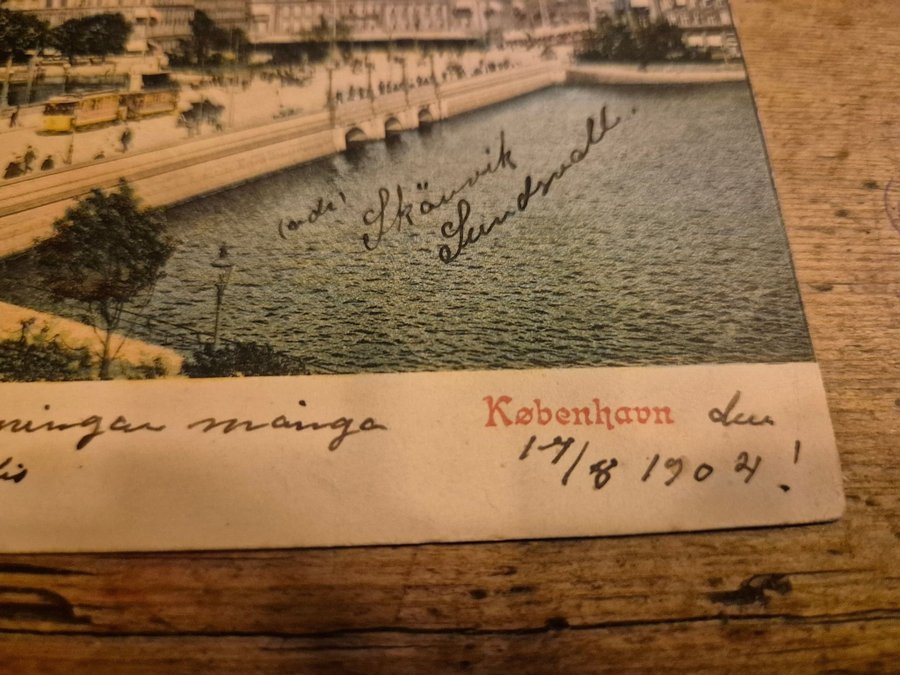 (adr)
Skönvik
Sundsvall.
ningar många
København den
17/8 1904!